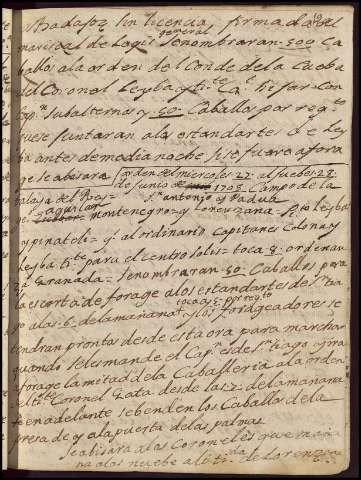 a Badajoz sin licencia firmada del
mariscal de logis general se nombraran 500 Ca
ballos a la orden del Conde de la Cueba
del Coronel Leyba
subalternos y 50 Caballos por reg.to
que se juntaran a los estandartes de Ley
ba antes de media noche si se fuera a fora
ge se abisara orden del miercoles 27 al jueves 28
de junio de 1708 Campo de la
S.n Antonio de Padua
aguilar montenegro y Lorenzana Leyba
y pinateli y al ordinario Capitanes Colona y
Leyba para el centro solis toca 8 ordenan
za Granada Senombraran 50 Caballos para
la escorta de forage a los estandartes de S.n tia
go a las 6 de la mañana toca 5 por reg.to y los fordgeadores se
tendran prontos desde esta ora para marchar
quando se les mande el Cap.n es de S.n tiago y ira
a forage la metad de la Caballeria a la orden
el Coronel Zata desde las 12 de la mañana
en adelante se benden los Caballos de la
presa de y a la puerta de las palmas
se abisara a los Coroneles que maña
na a las nuebe de Lorenzana